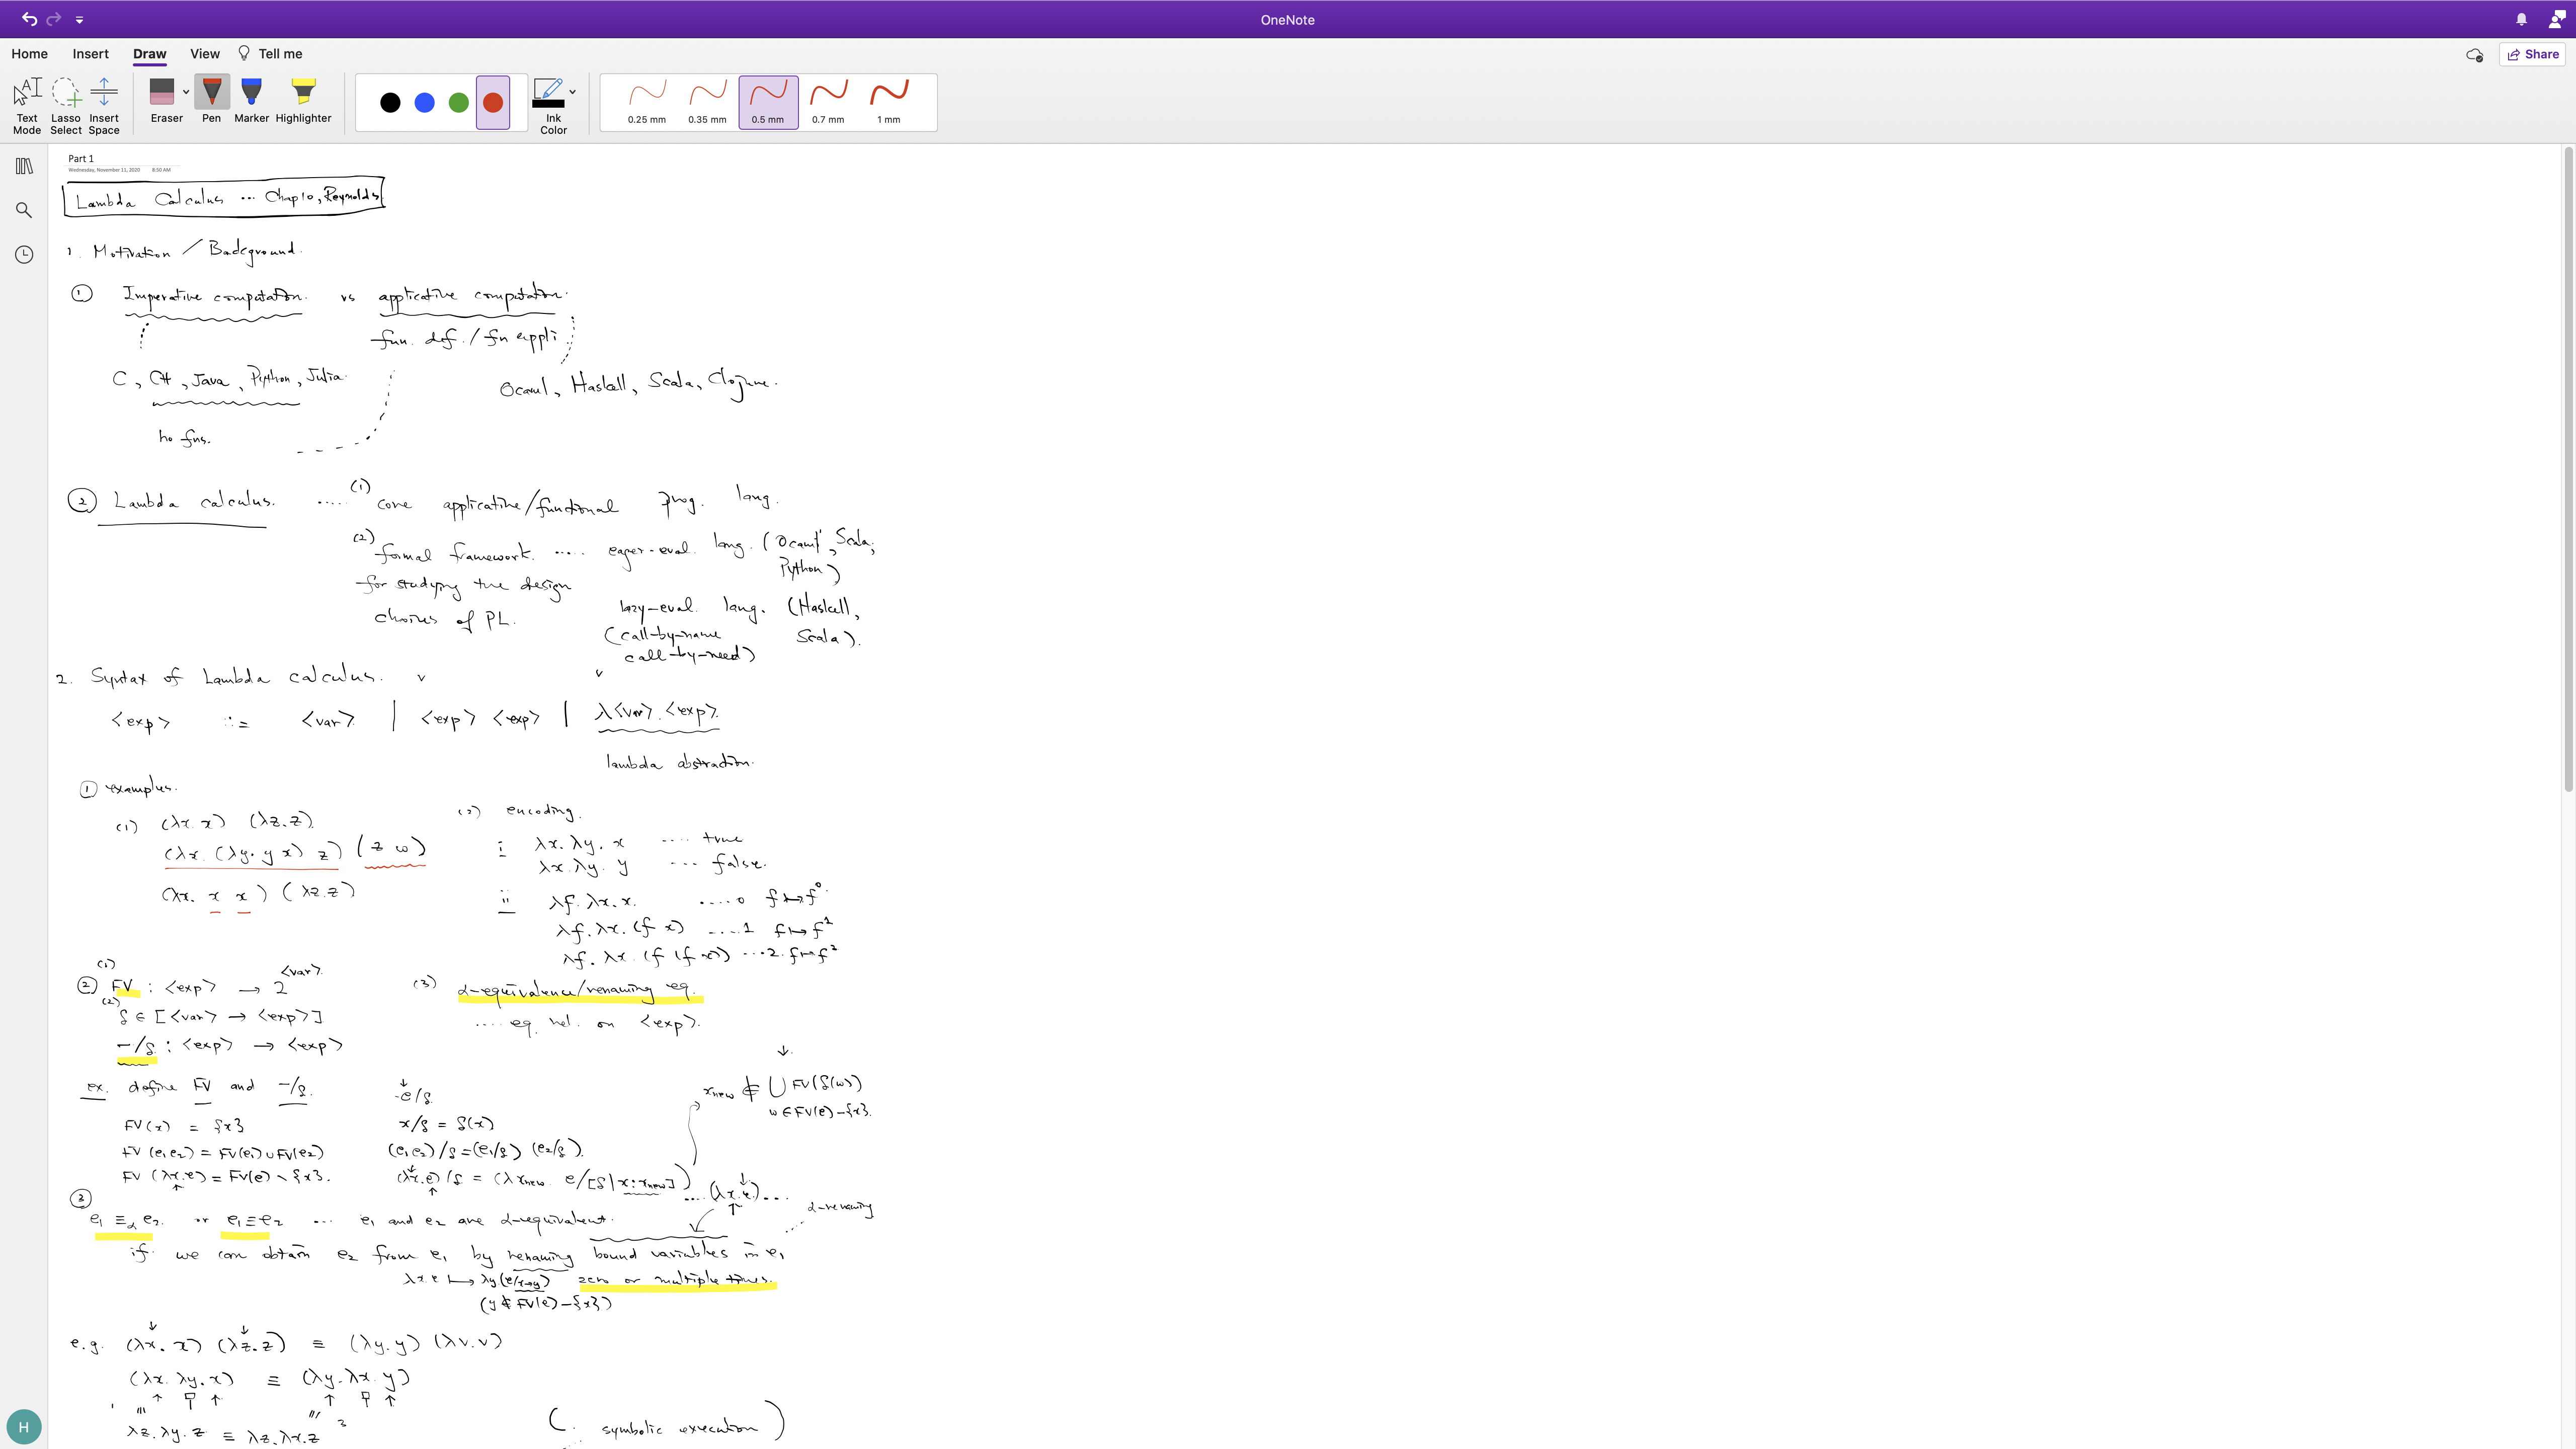 OneNote
Home Insert Draw View Tell me Share
Text Mode Lasso Select Insert Space Eraser Pen Marker Highlighter Ink Color 0.25 mm 0.35 mm 0.5 mm 0.7 mm 1 mm
Part 1
Wednesday, November 11, 2020 8:50 AM
Lambda Calculus ... Chap 10, Reynolds.
1. Motivation / Background.
① Imperative computation. vs applicative computation.
fun. def. / fn appli
C, C#, Java, Python, Julia. Ocaml, Haskell, Scala, Clojure.
ho fns.
② Lambda calculus. ..... (1) core applicative/functional prog. lang.
(2) formal framework. .... eager-eval. lang. (Ocaml, Scala, Python)
for studying the design
choices of PL.
lazy-eval. lang. (Haskell, Scala).
(call-by-name
call-by-need)
2. Syntax of Lambda calculus.
<exp> ::= <var> | <exp> <exp> | λ<var>.<exp>.
lambda abstraction.
① examples.
(1) (λx. x) (λz. z).
(λx. (λy. y x) z) (z w)
(λx. x x) (λz. z)
(2) encoding.
i λx. λy. x .... true
λx. λy. y ... false.
ii λf. λx. x. ....0 f↦f⁰.
λf. λx. (f x) ....1 f↦f¹
λf. λx. (f (f x)) ...2. f↦f²
② (1) FV : <exp> → 2^<var>.
(2) δ ∈ [<var> → <exp>]
-/δ : <exp> → <exp>
(3) α-equivalence/renaming eq.
.... eq. rel. on <exp>.
ex. define FV and -/δ.
FV(x) = {x}
FV(e₁e₂) = FV(e₁) ∪ FV(e₂)
FV(λx.e) = FV(e) \ {x}.
↓
e/δ
x/δ = δ(x)
(e₁e₂)/δ = (e₁/δ) (e₂/δ).
(λx.e)/δ = (λxnew. e/[δ|x:xnew])
↓
xnew ∉ ∪ FV(δ(w))
w∈FV(e)-{x}.
....(λx.e)....
③ e₁ ≡α e₂. or e₁ ≡ e₂ ... e₁ and e₂ are α-equivalent. α-renaming
if we can obtain e₂ from e₁ by renaming bound variables in e₁
λx.e ↦ λy(e/x→y) zero or multiple times.
(y ∉ FV(e)-{x})
e.g. (λx. x) (λz. z) ≡ (λy. y) (λv. v)
(λx. λy. x) ≡ (λy. λx. y)
λz. λy. z ≡ λz. λx. z
( symbolic execution )
H